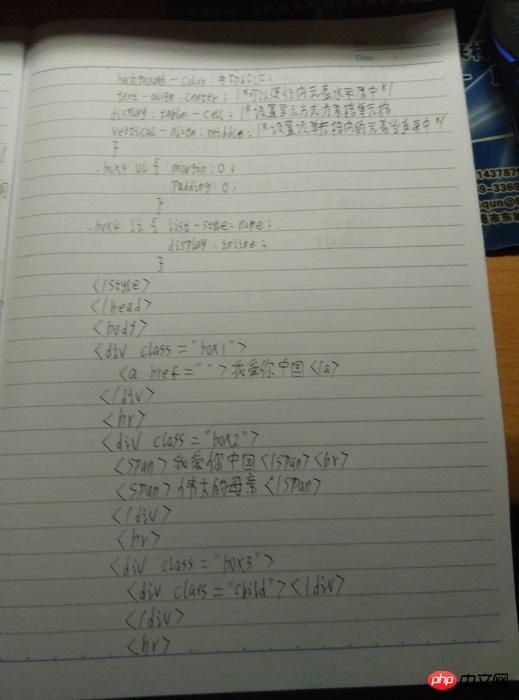 background-color:
text-align:center; /*可以使行内元素水平居中*/
display:table-cell; /*设置显示方式为表格单元格
vertical-align:middle; /*设置该单元格内的元素垂直居中*/
}
.box4 ul{ margin:0;
padding:0;
}
.box4 li{ list-style:none;
display:inline;
}
</style>
</head>
<body>
<div class="box1">
<a href="">我爱你中国</a>
</div>
<hr>
<div class="box2">
<span>我爱你中国</span><br>
<span>伟大的母亲</span>
</div>
<hr>
<div class="box3">
<div class="child"></div>
</div>
<hr>
Date
1437879
9-3369
qun@
php 中文网